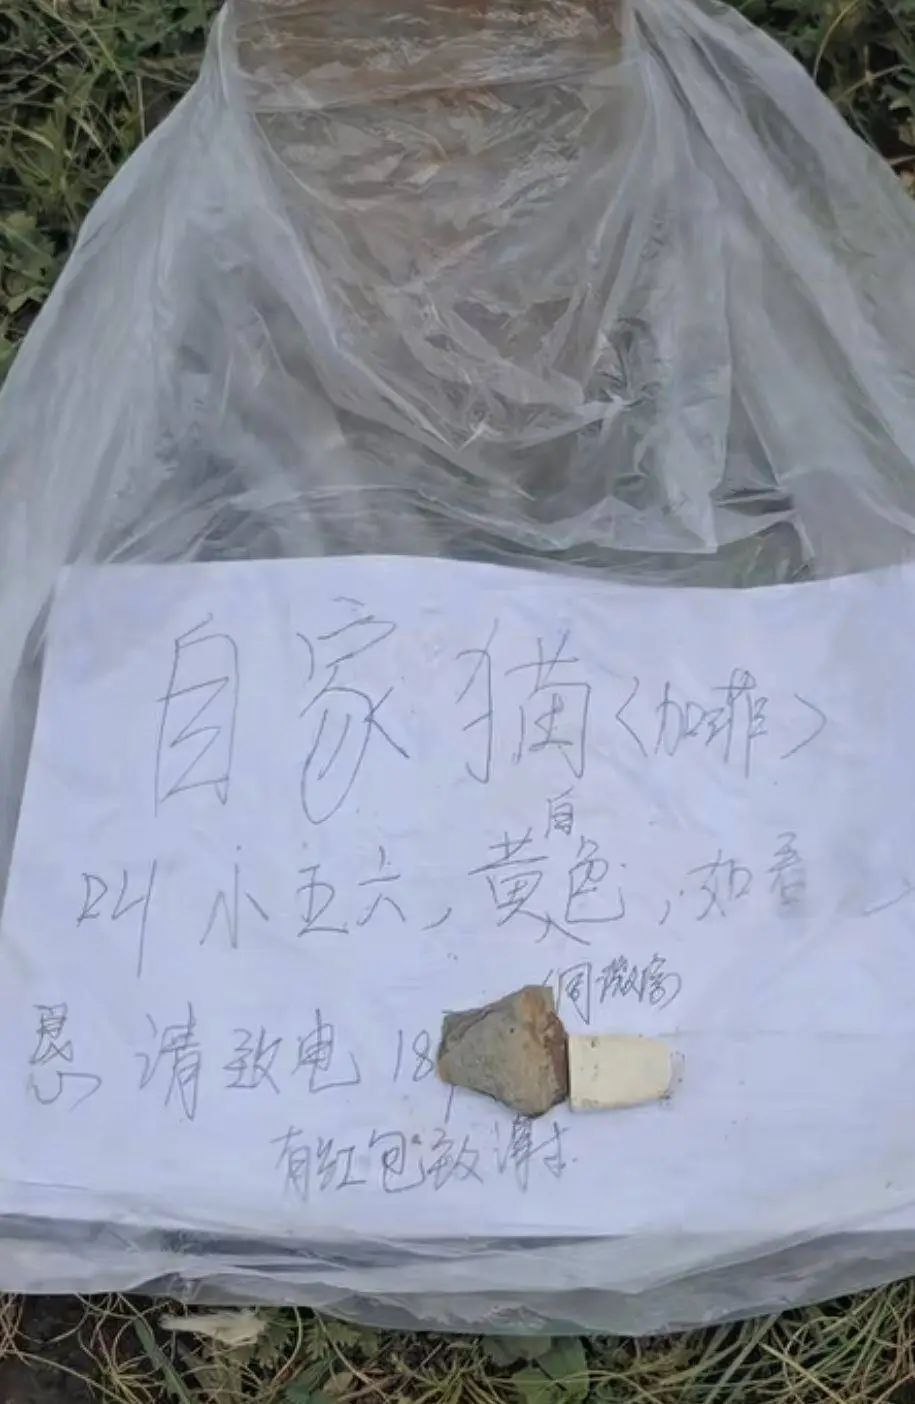 自家猫〈加菲〉
叫小五六，黄白色，如看
同微信
恳请致电 18
有红包致谢